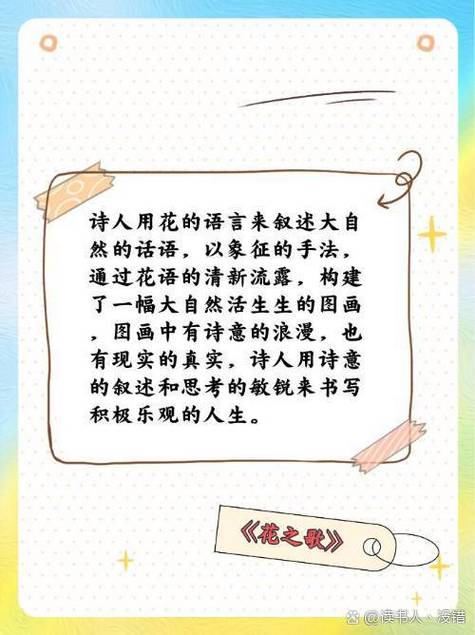 诗人用花的语言来叙述大自
然的话语，以象征的手法，
通过花语的清新流露，构建
了一幅大自然活生生的图画
，图画中有诗意的浪漫，也
有现实的真实，诗人用诗意
的叙述和思考的敏锐来书写
积极乐观的人生。
《花之歌》
@读书人、没错